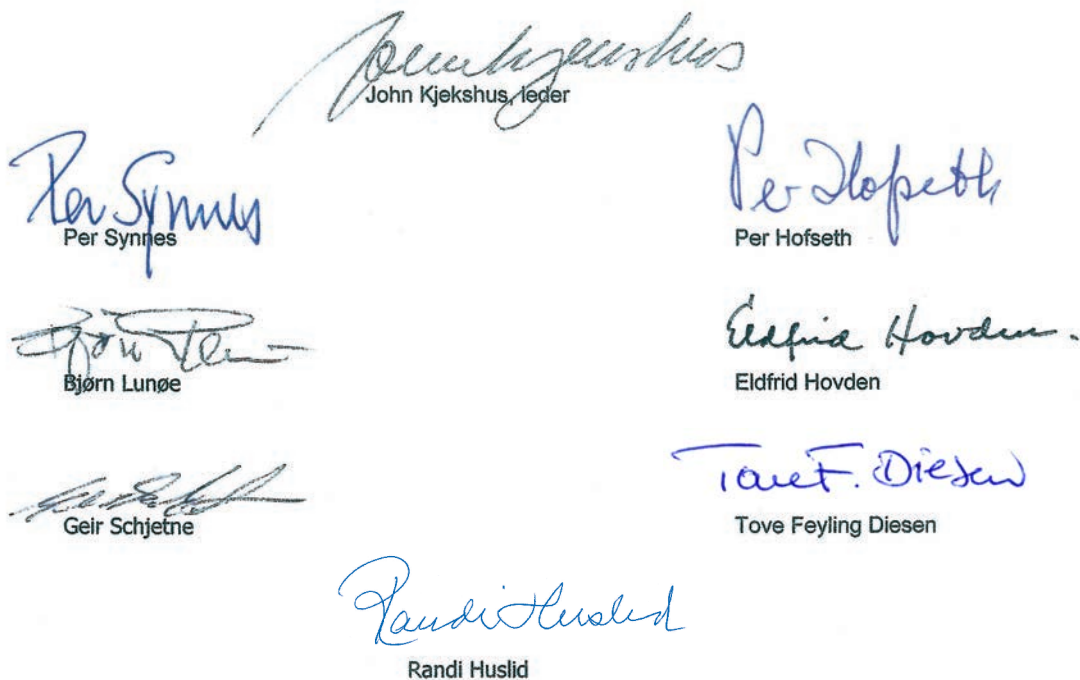 John Kjekshus
John Kjekshus, leder
Per Synnes
Per Synnes
Per Hofseth
Per Hofseth
Bjørn
Bjørn Lunøe
Eldfrid Hovden.
Eldfrid Hovden
Geir Schjetne
Tove F. Diesen
Tove Feyling Diesen
Randi Huslid
Randi Huslid